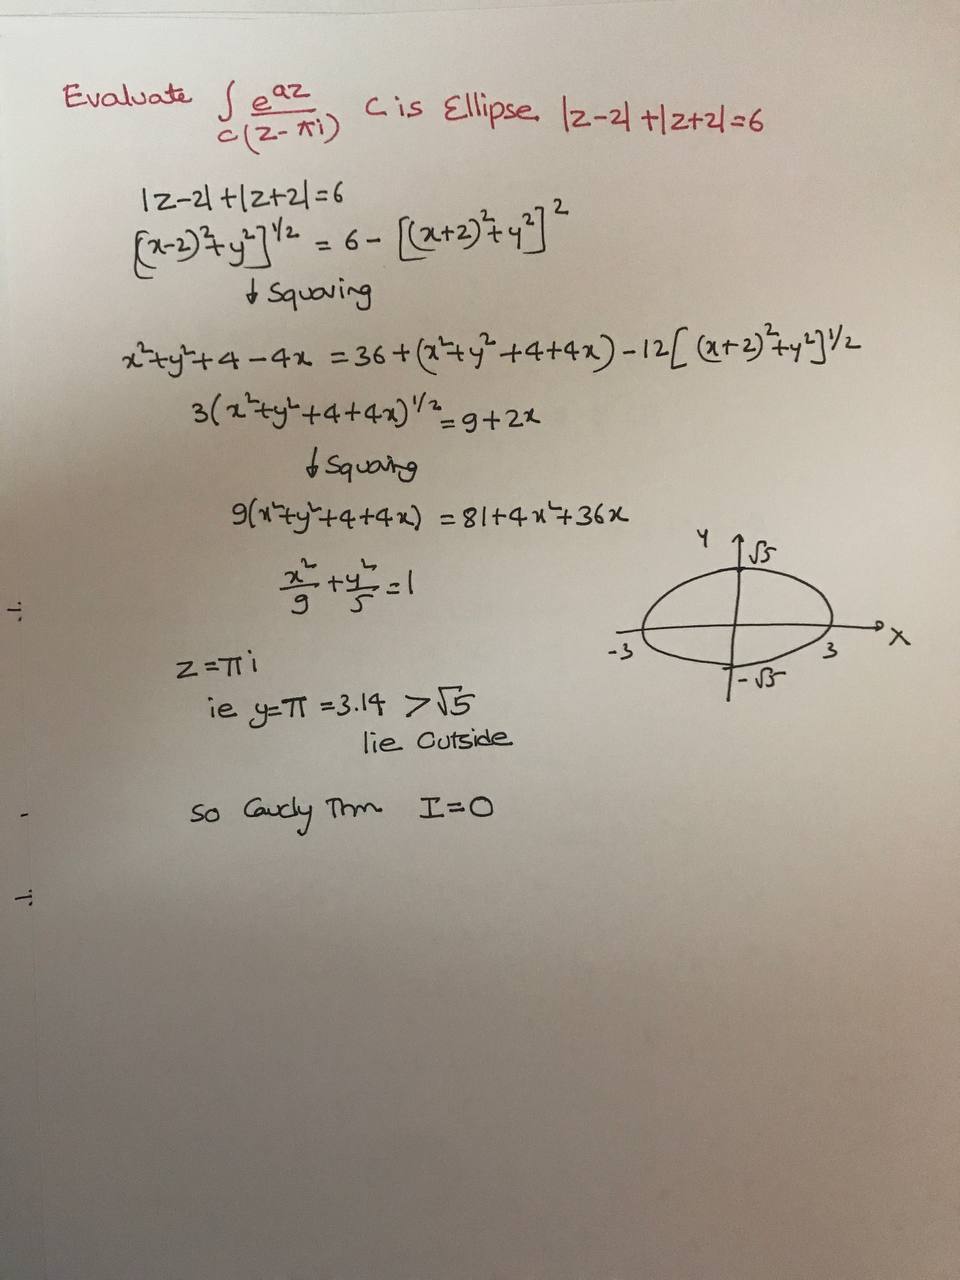 Evaluate ∫_C e^{az}/(z-πi) C is Ellipse |z-2|+|z+2|=6
|z-2|+|z+2|=6
[(x-2)²+y²]^{1/2} = 6-[(x+2)²+y²]²
↓ Squaring
x²+y²+4-4x = 36+(x²+y²+4+4x)-12[(x+2)²+y²]^{1/2}
3(x²+y²+4+4x)^{1/2} = 9+2x
↓ Squaring
9(x²+y²+4+4x) = 81+4x²+36x
x²/9 + y²/5 = 1
Y √5
-3 3 X
-√5
z=πi
ie y=π =3.14 >√5
lie Outside
so Caucly Thm I=0